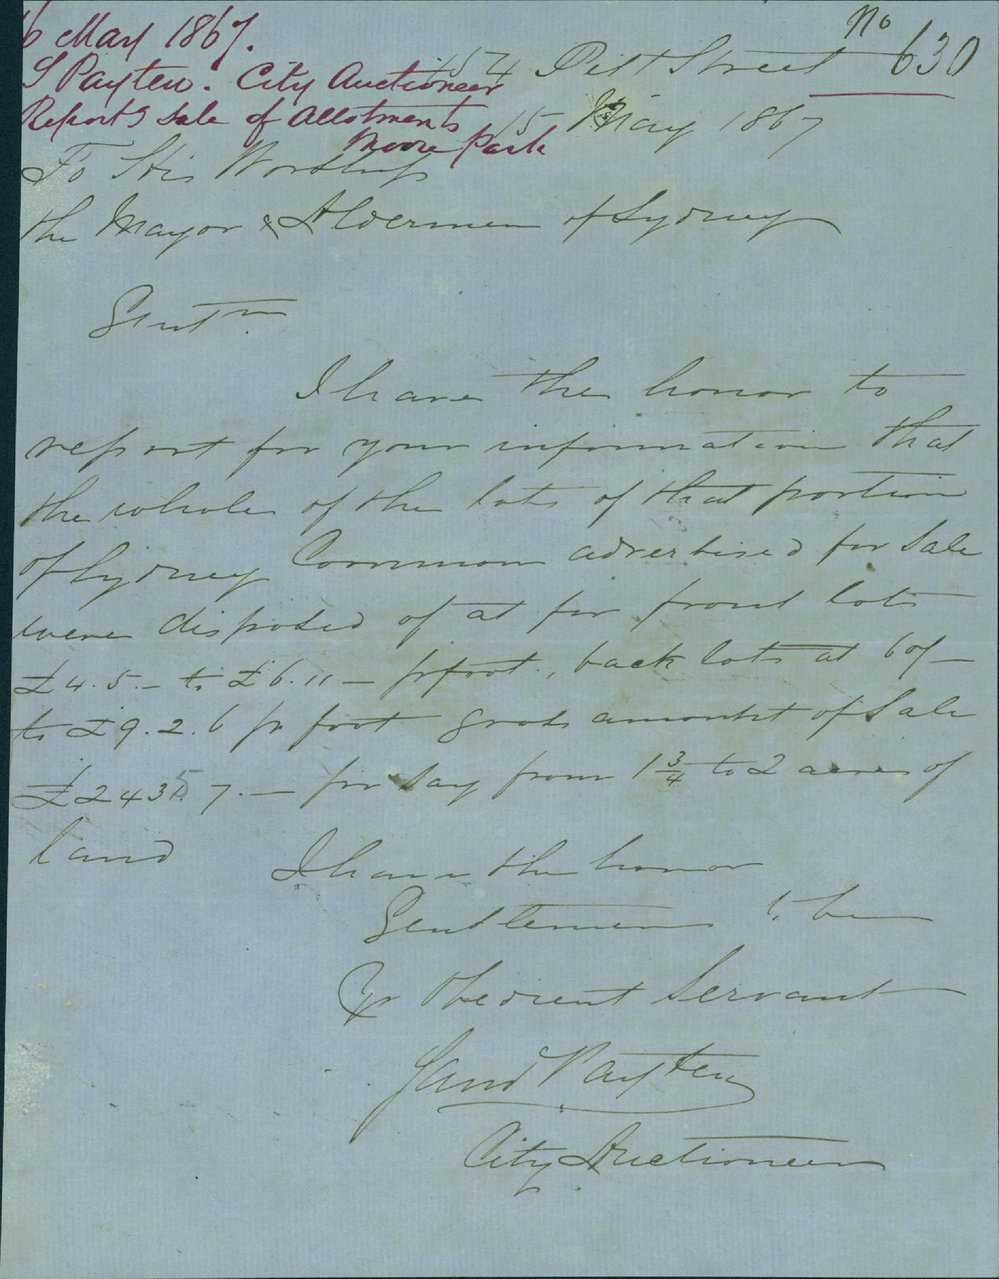 No 630
6 May 1867.
S Payten. City Auctioneer
Reports Sale of Allotments
Moore Park
154 Pitt Street
15 May 1867
To His Worship
the Mayor & Aldermen of Sydney
Gentn
I have the honor to
report for your information that
the whole of the lots of that portion
of Sydney Common advertised for Sale
were disposed of at for front lots
£4.5.– to £6.11 – pr foot., back lots at 60/–
to £9.2.6 pr foot gross amount of Sale
£2435.7.– for say from 1 3/4 to 2 acres of
land
I have the honor
Gentlemen to be
Yr Obedient Servant
Payten
City Auctioneer